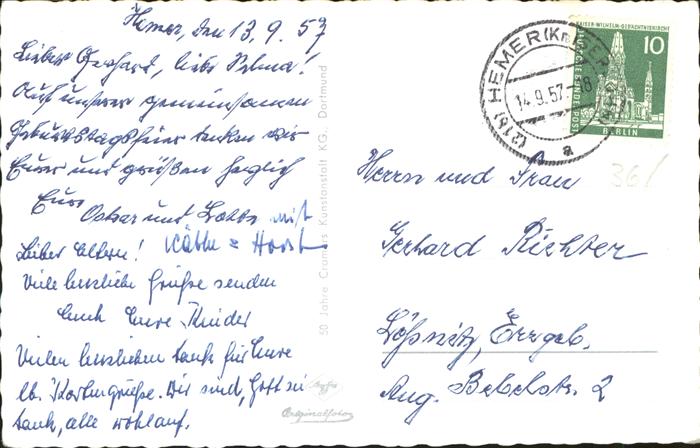 Hemer, den 13.9.57
Lieber Gerhard, liebe Selma!
Auf unserer gemeinsamen
Geburtstagsfeier denken wir
Eurer und grüßen herzlich
Eure
Oskar und Lotte mit
Käthe & Horst
Liebe Eltern!
Viele herzliche Grüße senden
Euch Eure Kinder
Vielen herzlichen Dank für Eure
lb. Kartengrüße. Wir sind, Gott sei
Dank, alle wohlauf.
50 Jahre Cramers Kunstanstalt KG. Dortmund
Originalfoto
KAISER-WILHELM-GEDÄCHTNISKIRCHE
10
DEUTSCHE BUNDESPOST
BERLIN
(21b) HEMER (Kr.
14.9.57
8
a
361
Herrn und Frau
Gerhard Richter
Lößnitz, Erzgeb.
Aug. Bebelstr. 2